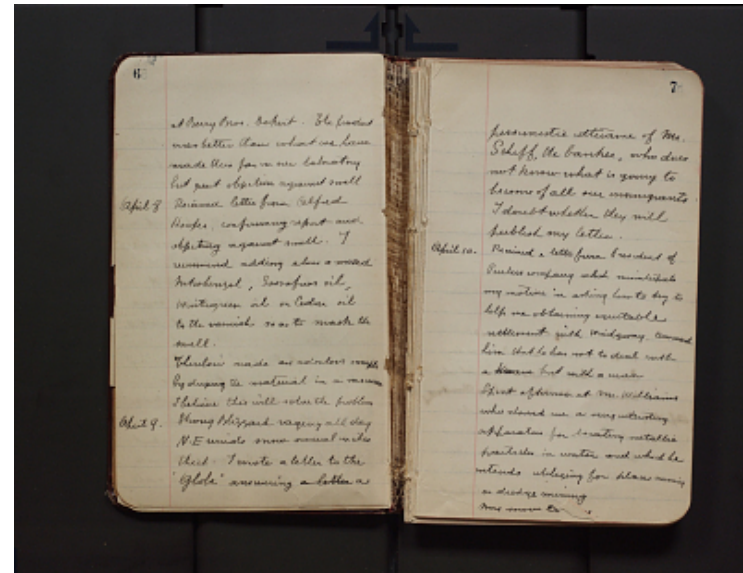 6
at Berry Bros. Detroit. The product
was better than what we have
made thus far in our laboratory
but great objection against smell
April 8 Received letter from Alfred
Hooker, confirming report and
objecting against smell. I
recommend adding also a mixed
Nitrobenzol, Sassafras oil,
Wintergreen oil or Cedar oil
to the varnish so as to mask the
smell.
Thurlow made an odorless sample
by drying the material in a vacuum
I believe this will solve the problem
April 9. Strong Blizzard raging all day
N.E winds snow several inches
thick. I wrote a letter to the
"Globe" answering a letter a
7
pessimistic utterance of Mr.
Schiff, the banker, who does
not know what is going to
become of all our immigrants.
I doubt whether they will
publish my letter.
April 10. Received a letter from President of
Peerless company which
my motive in asking him to try to
help me obtaining equitable
settlement with Ridgway. Answered
him that he has not to deal with
a but with a
Spent afternoon at Mr. Williams
who showed me a very interesting
apparatus for locating metallic
particles in water and which he
intends utilizing for placer mining
or dredge mining